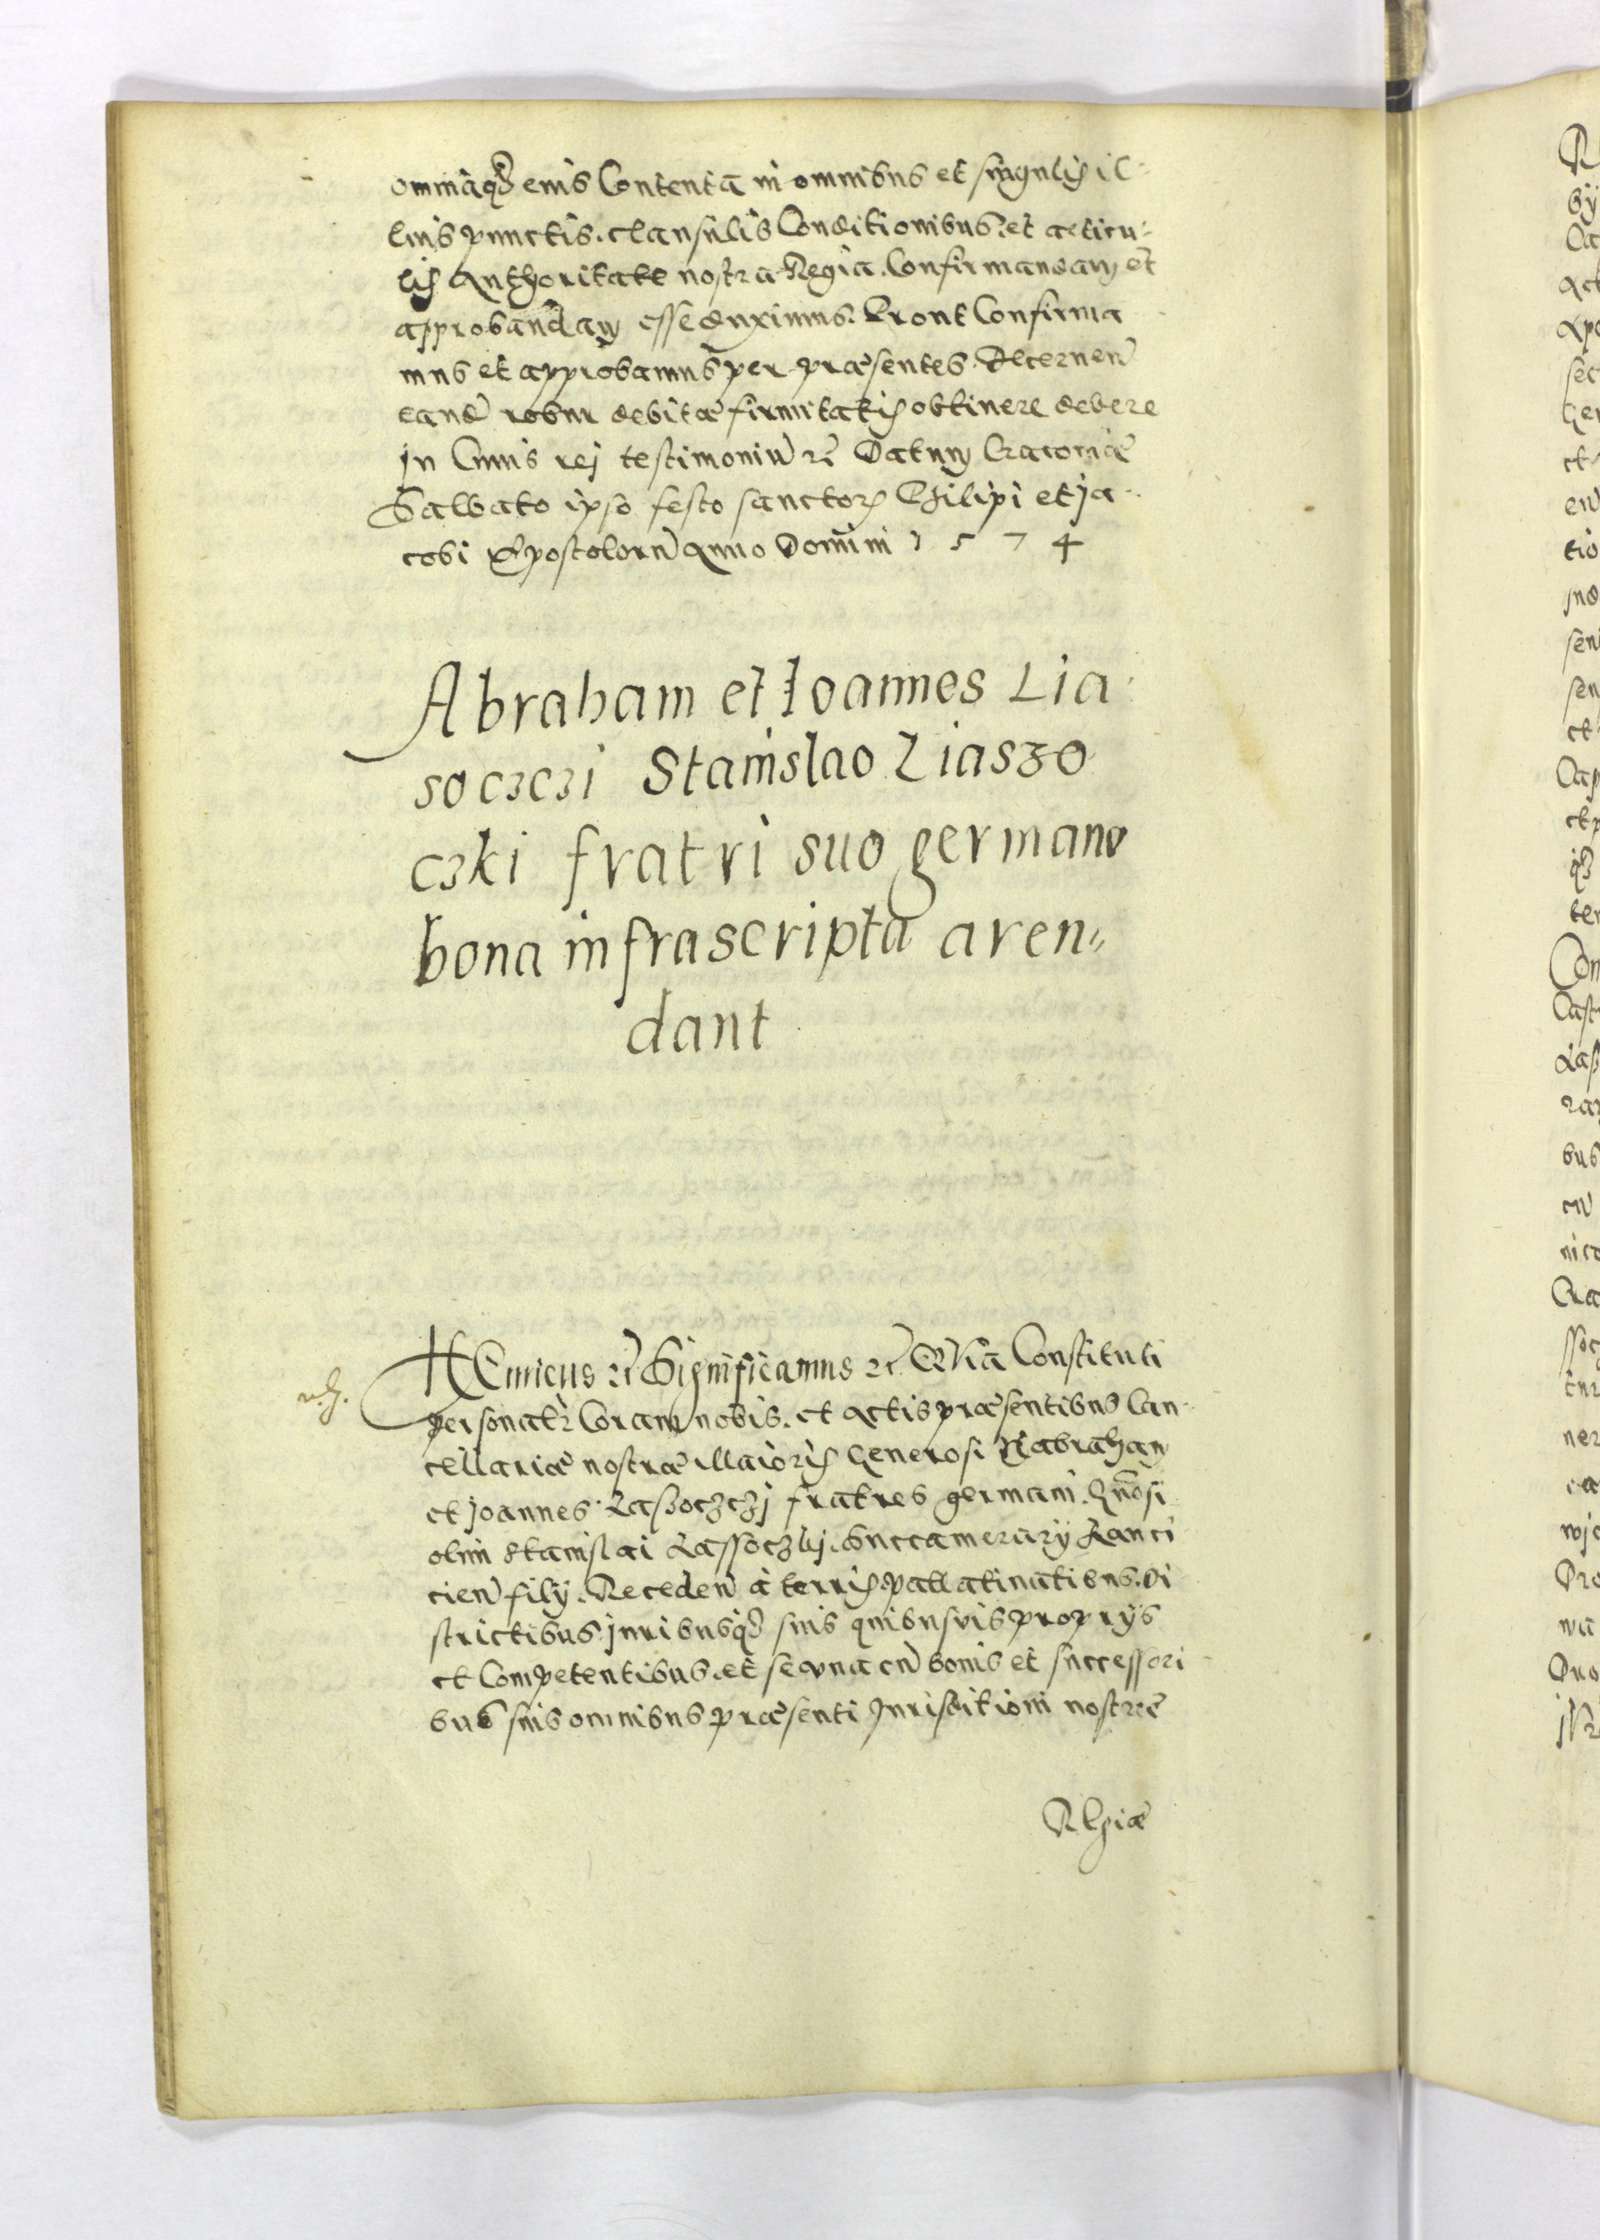 omniaq₃ eius Contenta in omnibus et singulis il-
lius punctis. clausulis Conditionibus. et articu-
lis Authoritate nostra Regia. Confirmandam et
approbandam esse duximus. Prout Confirma
mus et approbamus per præsentes. Decernen̄
eand̄ robur debitæ firmitatis obtinere debere
In Cuius rej testimoniū Datum Cracoviæ
Sabbato ipso festo sanctorꝝ Philipi et ja-
cobi Apostolorū Anno Domini 1 5 7 4
Abraham et Ioannes Lia-
soczczi Stanislao Liaszo
czki fratri suo germano
bona infrascripta aren-
dant
HEnricus Significamus QVia Constituti
personatr̄ Coram nobis. et Actis præsentibus Can-
cellariæ nostræ Maioris Generosi Habraham
et joannes. Laszoczczj fratres germani. Gn̄osi
olim Stanislai Lassoczkj. Succamerarÿ Lanci
cien̄ filÿ. Receden̄ à terris. pallatinatibus. Di
strictibus juribusq₃ suis quibusvis proprÿs
et Competentibus. et se una cū bonis et successori
bus suis omnibus præsenti Jurisditioni nostræ
Regiæ